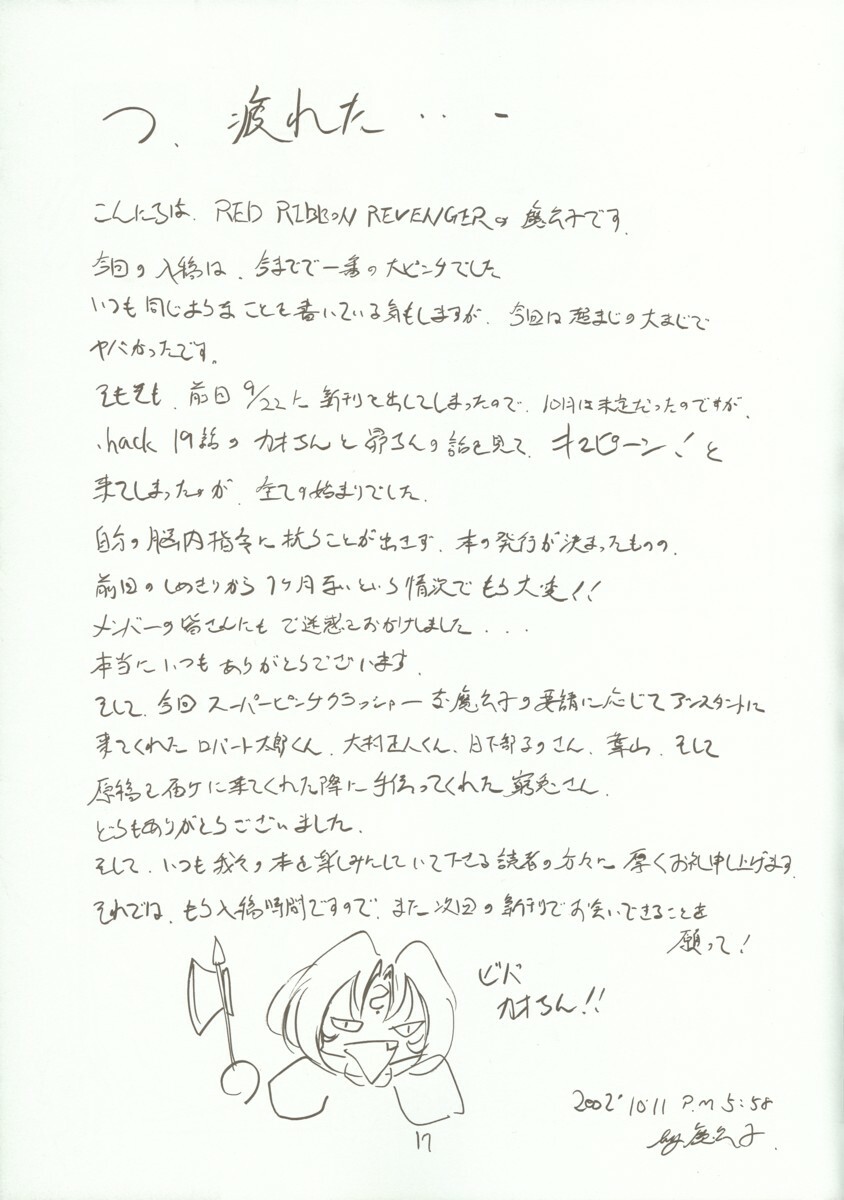 つ、疲れた・・・
こんにちは、RED RIBBON REVENGERの魔公子です。
今回の入稿は、今までで一番の大ピンチでした
いつも同じようなことを書いている気もしますが、今回は超まじの大まじで
ヤバかったです。
そもそも、前回9/22に新刊を出してしまったので、10月は未定だったのですが、
.hack 19話のカオちんと昴ちんの話を見て、キュピーン!と
来てしまったのが、全ての始まりでした。
自分の脳内指令に抗うことが出きず、本の発行が決まったものの、
前回のしめきりから1ヶ月ないという情況でもう大変!!
メンバーの皆さんにもご迷惑をおかけしました...
本当にいつもありがとうございます。
そして、今回スーパーピンチクラッシャーな魔公子の要請に応じてアシスタントに
来てくれたロバート太郎くん、大村正人くん、日下部子のさん、葉山、そして
原稿を届けに来てくれた際に手伝ってくれた窮兎さん、
どうもありがとうございました。
そして、いつも我々の本を楽しみにしていて下さる読者の方々に厚くお礼申し上げます。
それでは、もう入稿時間ですので、また次回の新刊でお会いできることを
願って!
ビバ
カオちん!!
2002' 10.11 P.M 5:58
by 魔公子.
17